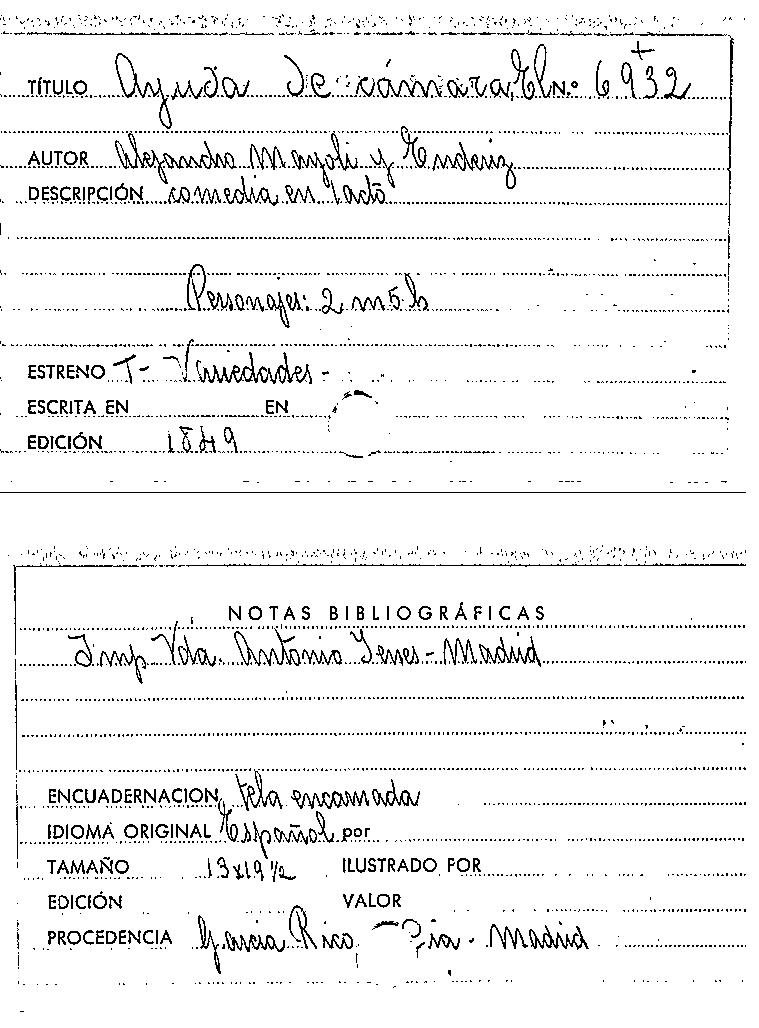 TÍTULO Ayuda de cámara, El N.º 6932
AUTOR Alejandro Mayoli y Enderiz
DESCRIPCIÓN comedia en 1 acto
Personajes: 2 m 5 h
ESTRENO T- Variedades-
ESCRITA EN EN
EDICIÓN 1849
NOTAS BIBLIOGRÁFICAS
Imp Vda. Antonio Yenes - Madrid
ENCUADERNACION tela encarnada
IDIOMA ORIGINAL Español por
TAMAÑO 13x19 1/2 ILUSTRADO POR
EDICIÓN VALOR
PROCEDENCIA García Rico, Madrid